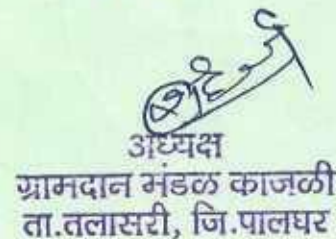 अध्यक्ष
ग्रामदान मंडळ काजळी
ता.तलासरी, जि.पालघर